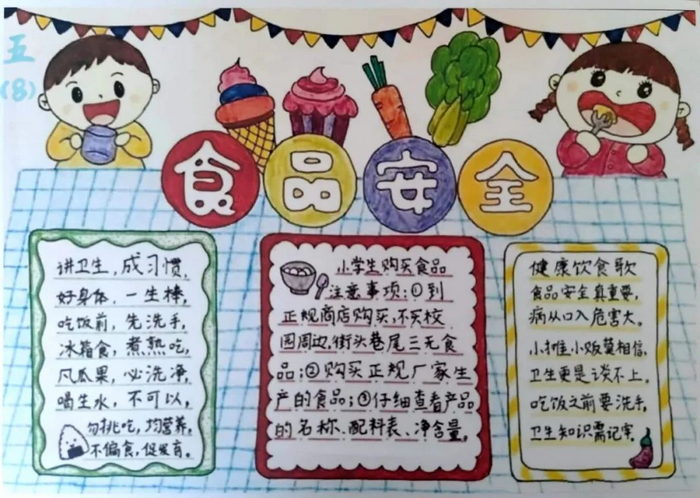 五
(8)
食品安全
讲卫生,成习惯,
好身体,一生棒,
吃饭前,先洗手,
冰箱食,煮熟吃,
凡瓜果,必洗净,
喝生水,不可以,
勿挑吃,均营养,
不偏食,促发育。
小学生购买食品
注意事项:①到
正规商店购买,不买校
园周边、街头巷尾三无食
品;②购买正规厂家生
产的食品;③仔细查看产品
的名称、配料表、净含量。
健康饮食歌
食品安全真重要,
病从口入危害大。
小摊小贩莫相信,
卫生更是谈不上。
吃饭之前要洗手,
卫生知识需记牢。